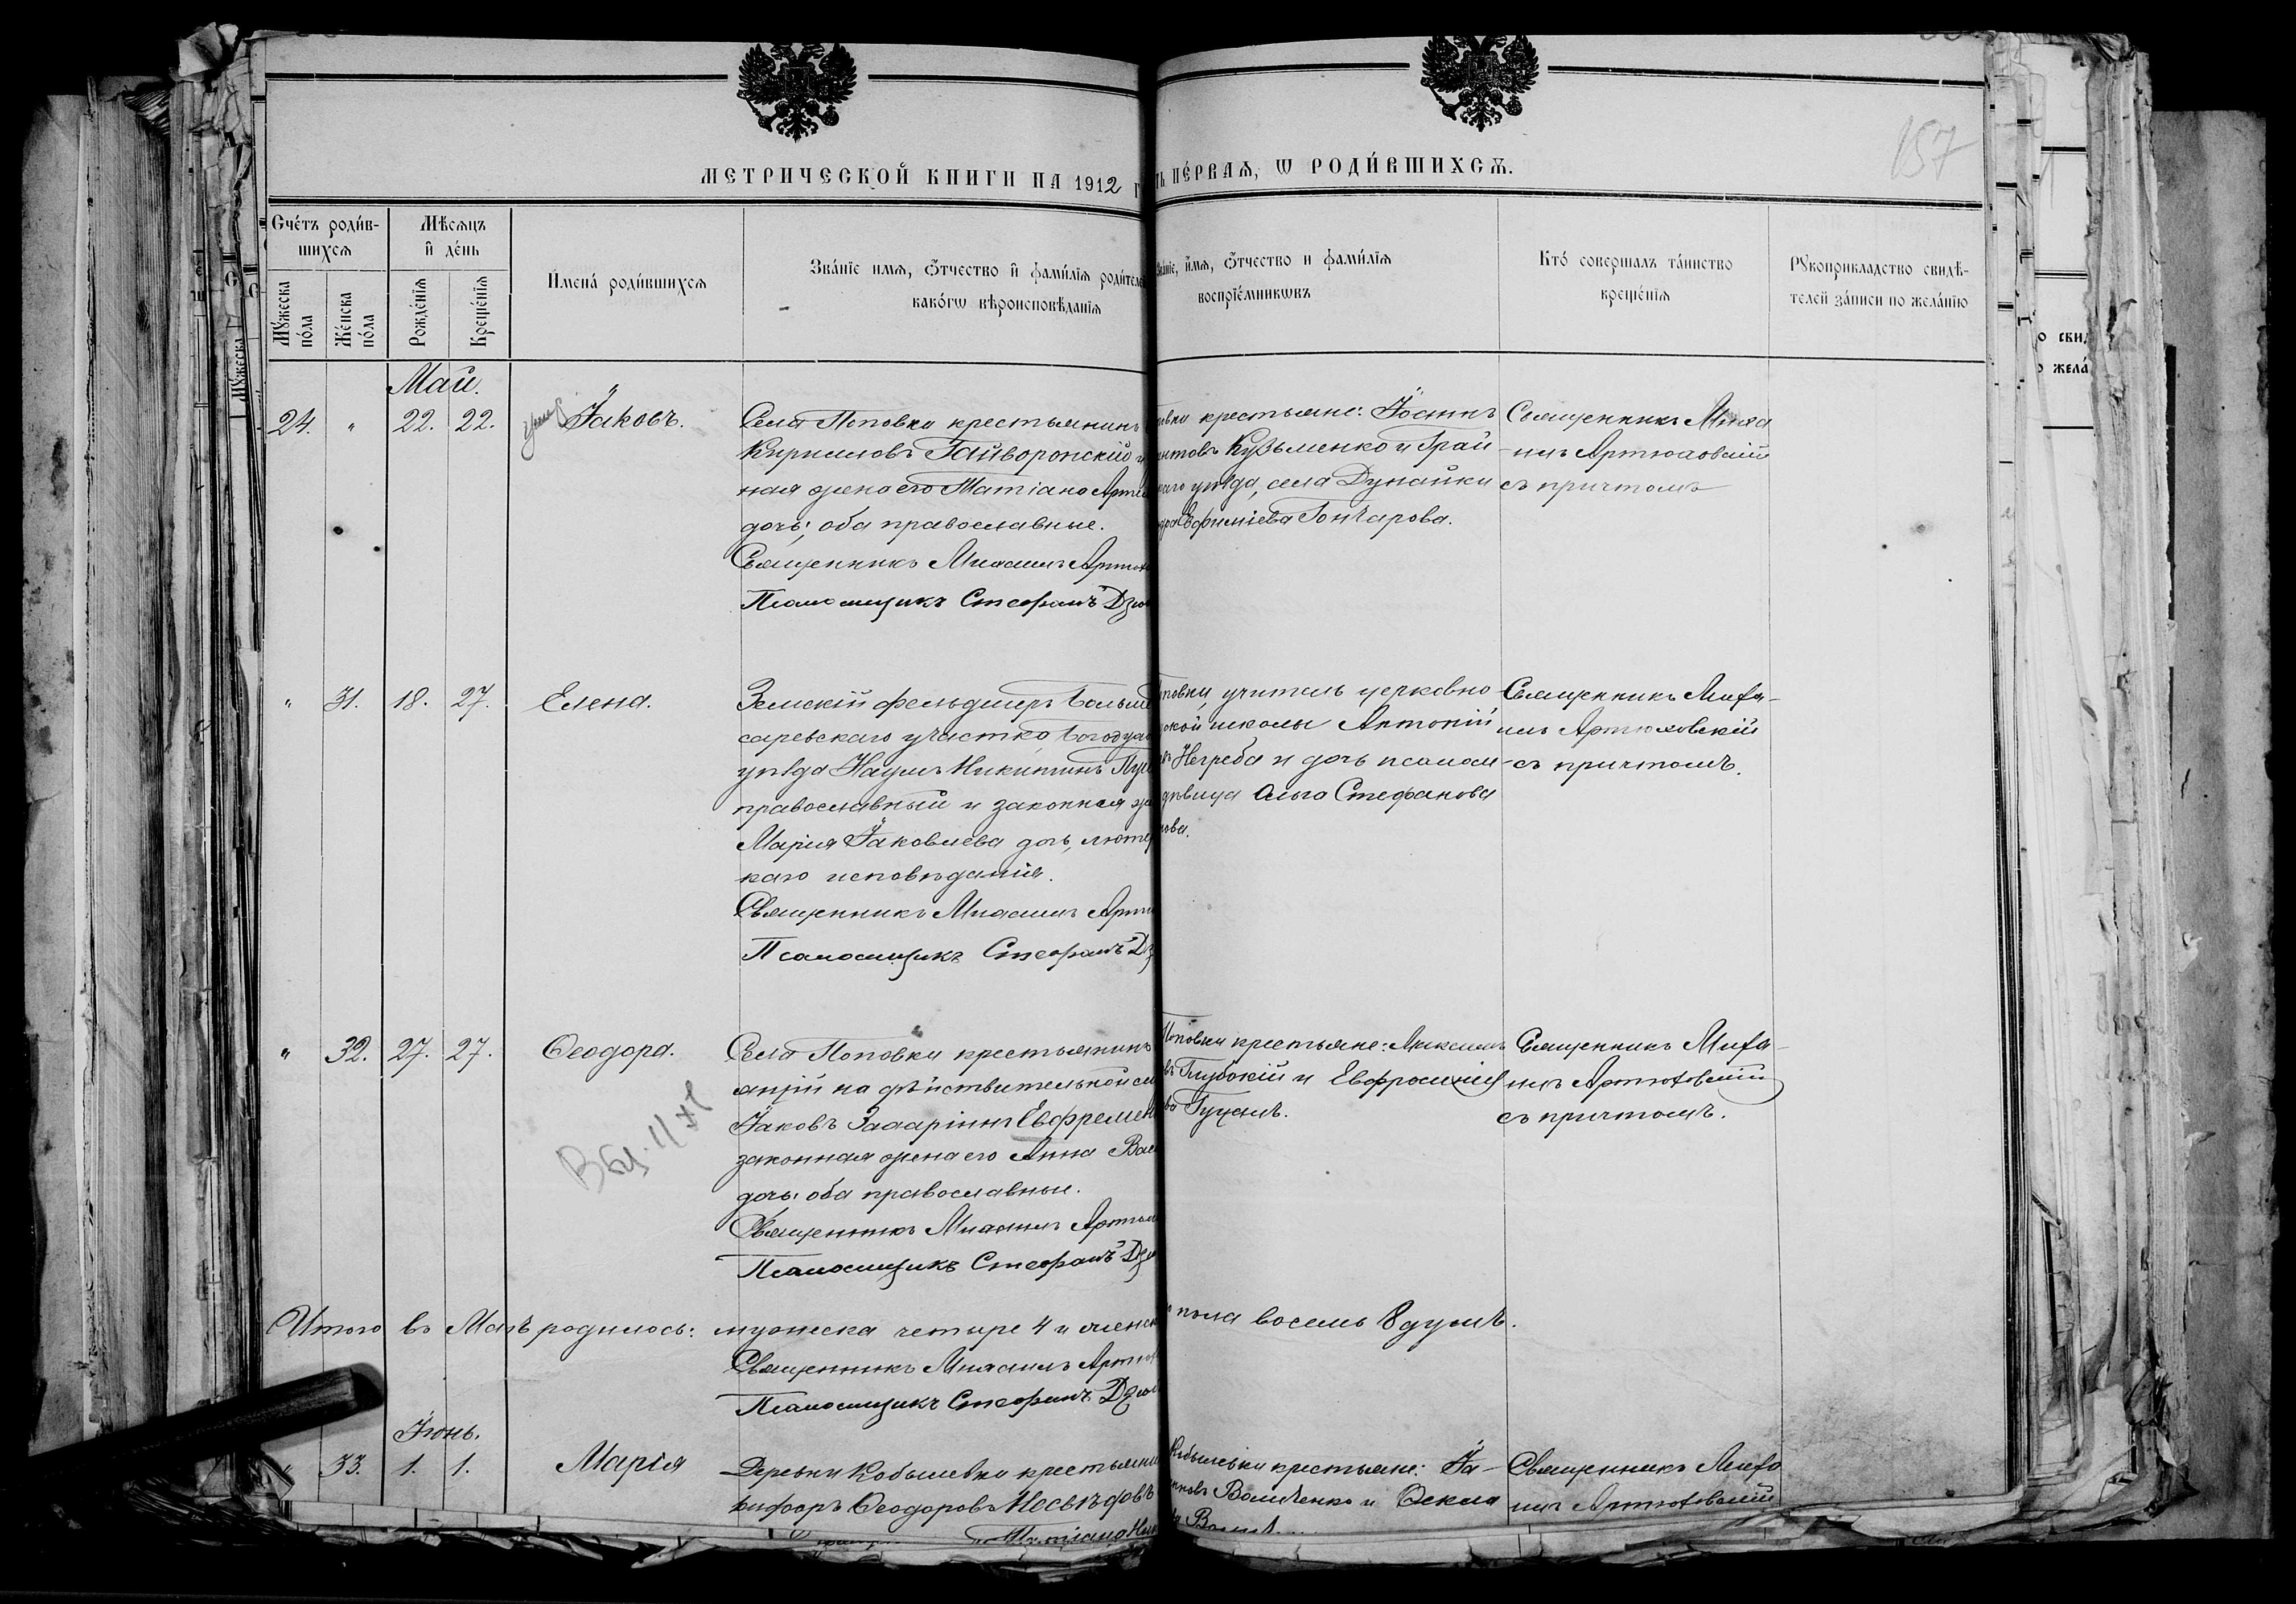 157
МЕТРИЧЕСКОЙ КНИГИ НА 1912 Г
ТЬ ПЕРВАЯ, Ѡ РОДИВШИХСЯ.
Счетъ родив-
шихся
Мѣсяцъ
и день
Мужеска
пола
Женска
пола
Рожденія
Крещенія
Имена родившихся
Званіе имя, отчество и фамилія родителе
какого вѣроисповѣданія
Званіе, имя, отчество и фамилія
воспріемниковъ
Кто совершалъ таинство
крещенія
Рукоприкладство свидѣ-
телей записи по желанію
Май.
24. " 22. 22. Іаковъ.
Села Поповки крестьянинъ
Кирилловъ Гайворонскій и
ная жена его Татіана Арте
дочь; оба православные.
Священникъ Михаилъ Артюх
Псаломщикъ Стефанъ Дзю
овки крестьяне: Іостинъ
нтовъ Кузьменко и Грай
каго уѣзда, села Дунайки
дора Ефиміева Гончарова.
Священникъ Миха
илъ Артюховскій
съ причтомъ
" 31. 18. 27. Елена.
Земскій фельдшеръ Больше
саревскаго участка, Богодух
уѣзда Наумъ Никитинъ Пуг
православный и законная же
Марія Іаковлева дочь, лютер
каго исповѣданія.
Священникъ Михаилъ Артю
Псаломщикъ Стефанъ Дз
повки, учитель церковно
ской школы Антоній
Негреба и дочь псалом-
дѣвица Ольга Стефанова
ова.
Священникъ Миха-
илъ Артюховскій
съ причтомъ.
" 32. 27. 27. Ѳеодора.
Села Поповки крестьянинъ
ящій на дѣйствительной сл
Іаковъ Захаріинъ Евфремен
законная жена его Анна Вас
дочь; оба православные.
Священникъ Михаилъ Артюх
Псаломщикъ Стефанъ Дзю
Поповки крестьяне: Максимъ
въ Глубокій и Евфросинія
ва Гуцалъ.
Священникъ Миха-
илъ Артюховскій
съ причтомъ.
Итого въ Маѣ родилось: мужеска четыре 4 и женск
пола восемь 8 душъ.
Священникъ Михаилъ Артюх
Псаломщикъ Стефанъ Дзю
Іюнь.
" 33. 1. 1. Марія
Деревни Кобылевки крестьянин
кифоръ Ѳеодоровъ
Татіана Ник
Кобылевки крестьяне: Іа-
Волченко и Ѳекла
Священникъ Миха
илъ Артюховскій